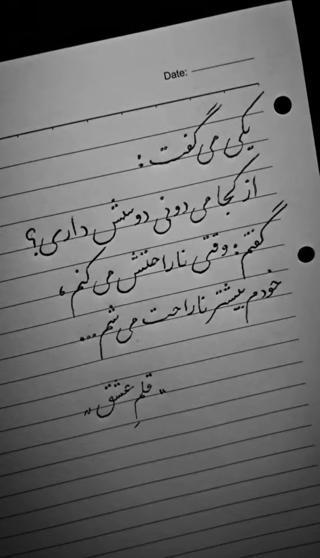 Date:
یکی می گفت :
از کجا می دونی دوسش داری؟
گفتم : وقتی ناراحتش می کنم،
خودم بیشتر ناراحت می شم...
"قلمِ عشق"